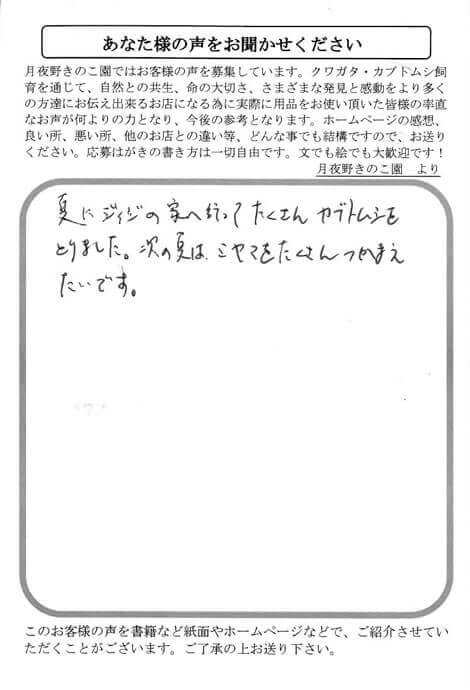 あなた様の声をお聞かせください
月夜野きのこ園ではお客様の声を募集しています。クワガタ・カブトムシ飼
育を通じて、自然との共生、命の大切さ、さまざまな発見と感動をより多く
の方達にお伝え出来るお店になる為に実際に用品をお使い頂いた皆様の率直
なお声が何よりの力となり、今後の参考となります。ホームページの感想、
良い所、悪い所、他のお店との違い等、どんな事でも結構ですので、お送り
ください。応募はがきの書き方は一切自由です。文でも絵でも大歓迎です！
月夜野きのこ園　より
夏にジイジの家へ行って たくさん カブトムシを
とりました。次の夏は、ミヤマをたくさん つかまえ
たいです。
このお客様の声を書籍など紙面やホームページなどで、ご紹介させてい
ただくことがございます。ご了承の上お送り下さい。